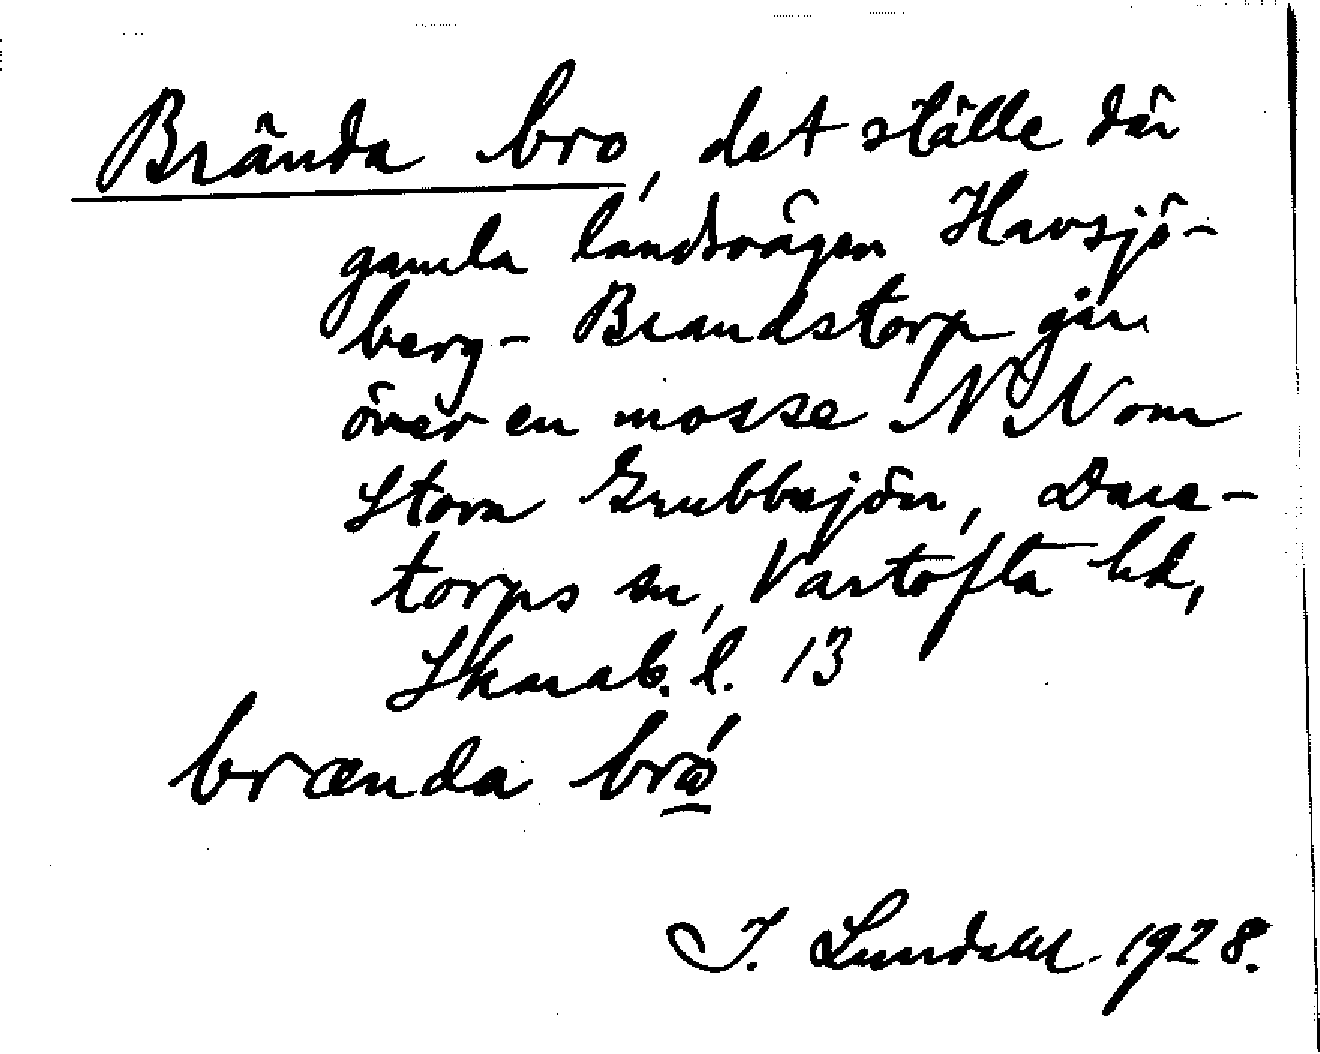 Brända bro, det ställe där
gamla landsvägen Havsjö-
berg- Brandstorp går
över en mosse N N om
Stora Grubbesjön, Dare-
torps sn, Vartofta hd,
Skarab. l. 13
brænda brώ
I. Lundahl 1928.